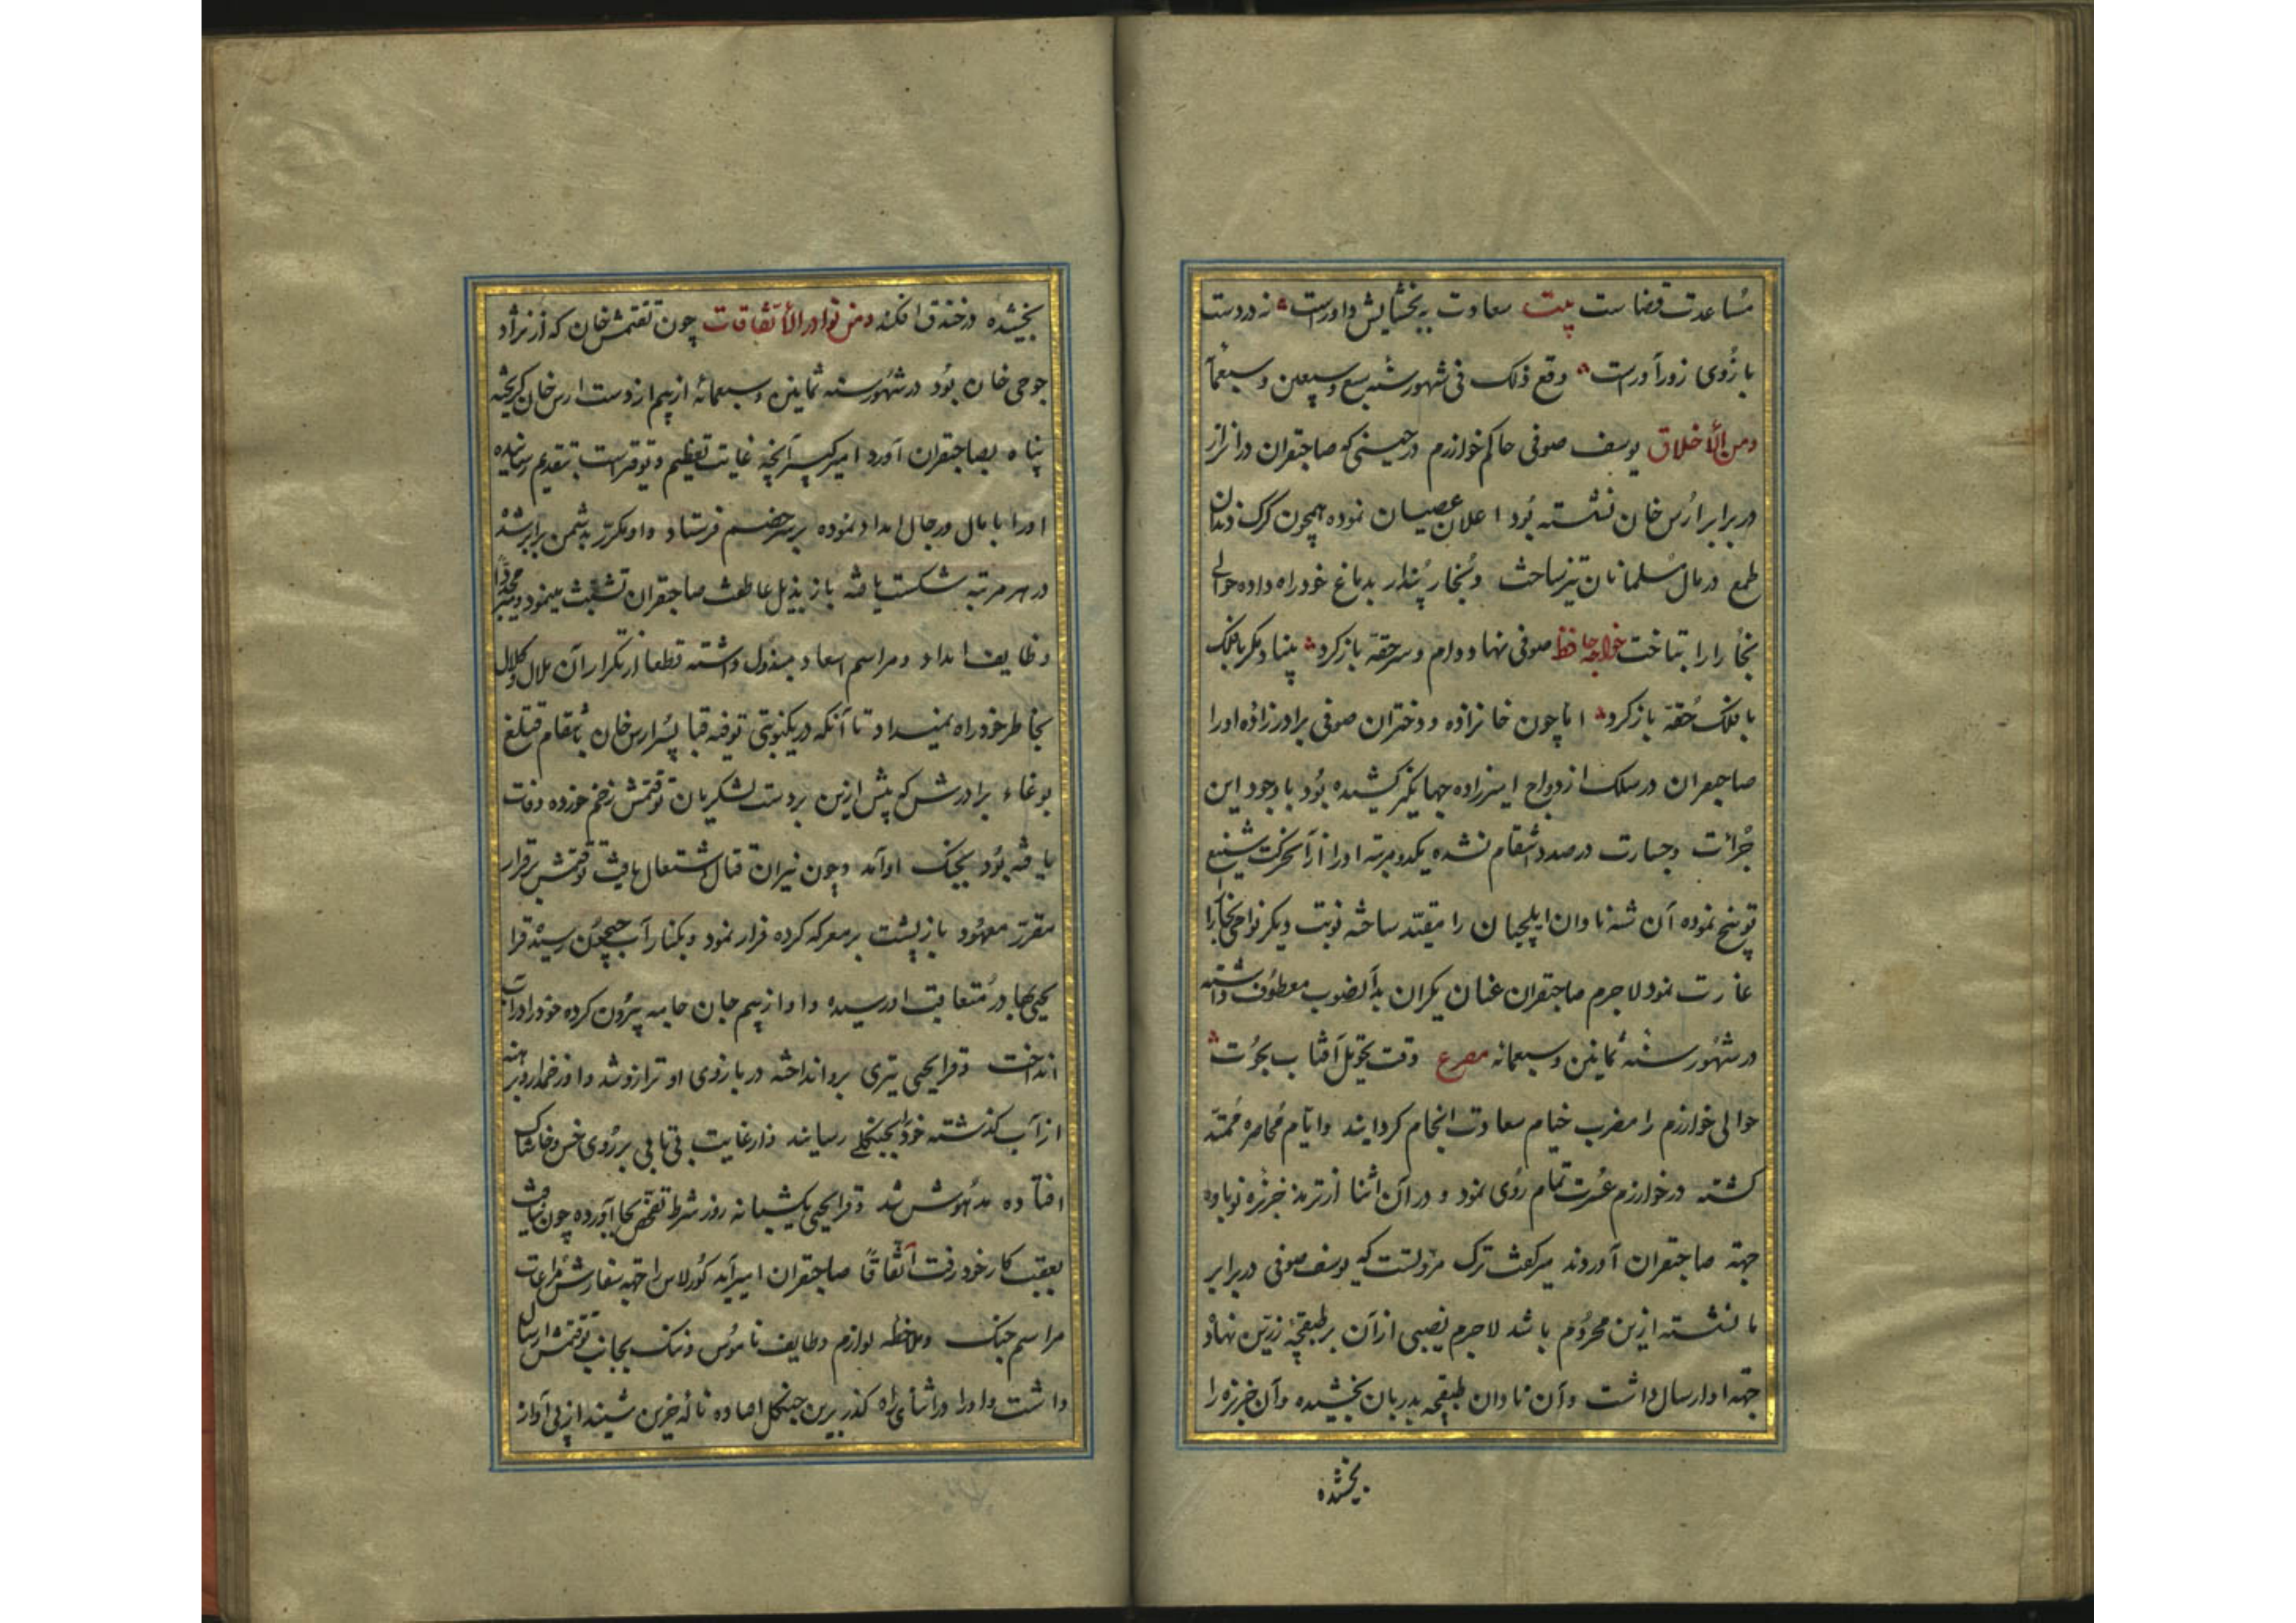 مُساعدت قضاست بیت سعادت ببخشایش داورست نه در دست
بازُوی زورآورست وقع ذلک فی شهور سنه سبع وسبعین وسبعمأ
ومن الأخلاق یوسف صوفی حاکم خوارزم در حینی که صاحبقران در انرار
در برابر ارُس خان نشسته بُود اعلان عصیان نموده همچون کرک دندان
طمع در مال مسلمانان تیز ساخت وبُخار پُندار بدماغ خود راه داده حوالی
بخُارا را بتاخت خواجه حافظ صوفی نهاد دام وسر حقه باز کرد بنیاد مکر با فلک
با فلک حُقه باز کرد اما چون خانزاده دختران صوفی برادرزاده او را
صاحبقران در سلک ازدواج امیرزاده جهانکیر کشیده بُود باوجود این
جُرأت وجسارت در صدد انتقام نشده یکدو مرتبه اورا از آن حرکت شنیع
توبیخ نموده آن شه نادان ایلچیان را مقید ساخته نوبت دیکر نواحی بخارا
غارت نمود لاجرم صاحبقران عنان یکران بدآنصوب معطوف داشته
در شهُور سنهٔ ثمانین وسبعمائه مصرع وقت تحویل آفتاب بحُوت
حوالی خوارزم را مضرب خیام سعادت انجام کردانید وایام مُحاصره مُمتد
کشته در خوارزم عُسرت تمام رُوی نمود و در آن اثنا از ترمذ خربزه نوباوه
جهة صاحبقران آوردند میرکفت ترک مروتست که یوسف صوفی در برابر
ما نشسته ازین محرُوم باشد لاجرم نصیبی از آن بر طبقچهٔ زرین نهاد
جهة او ارسال داشت وآن نادان طبقچه بدربان بخشیده وآن خربزه را
بخشیده
بخشیده در خندق افکند ومن نوادر الأتفاقات چون تقتمش خان که از نژاد
جوجی خان بُود در شهُور سنه ثمانین وسبعمائه از بیم از دست ارس خان کریخته
پناه بصاحبقران آورد امیرکبیر آنچه غایت تعظیم وتوقیر است بتقدیم رسانیده
اورا بامال ورجال امداد نموده بر سر خصم فرستاد واو مکرر بدشمن برابر شد
در هر مرتبه شکست یافته باز بذیل عاطفت صاحبقران تشبث مینمود ومیر مجددا
وظایف امداد ومراسم اسعاد مبذول داشته قطعا از تکرار آن ملال وکلال
بخاطر خود راه نمیداد تا آنکه در یکنوبتی توقه قبا پسُر ارس خان بانتقام قتلغ
بوغاء برادرش که پیش ازین بر دست لشکریان توقتمش زخم خورده وفات
یافته بُود بجنک او آمد وچون نیران قتال اشتعال یافت توقتمش برقرار
مقرر معهُود باز پشت بر معرکه کرده فرار نمود وبکنار آب جیحُون رسید قرا
یحیی بها در مُتعاقبت او رسیده واو از بیم جان جامه بیرُون کرده خود را در آب
انداخت وقرا یحیی تیری برو انداخته در بازوی او ترازو شد واو زخمدار وبرهنه
از آب کذشته خودرا بجنکلی رسانید واز غایت بیتابی بر رُوی خس وخاشاک
افتاده مدهُوش شد وقرا یحیی یکشبانه روز شرط تفحص بجا آورده چون نیافت
بعقب کار خود رفت اتفاقاً صاحبقران امیر ایدکو برلاس را جهة سفارش مراعات
مراسم جنک وملاحظه لوازم وظایف نامُوس وننک بجانب توقتمش ارسال
داشت واورا در اثنأی راه کذر برین جنکل افتاده نالهٔ حزین شنید از پی آواز